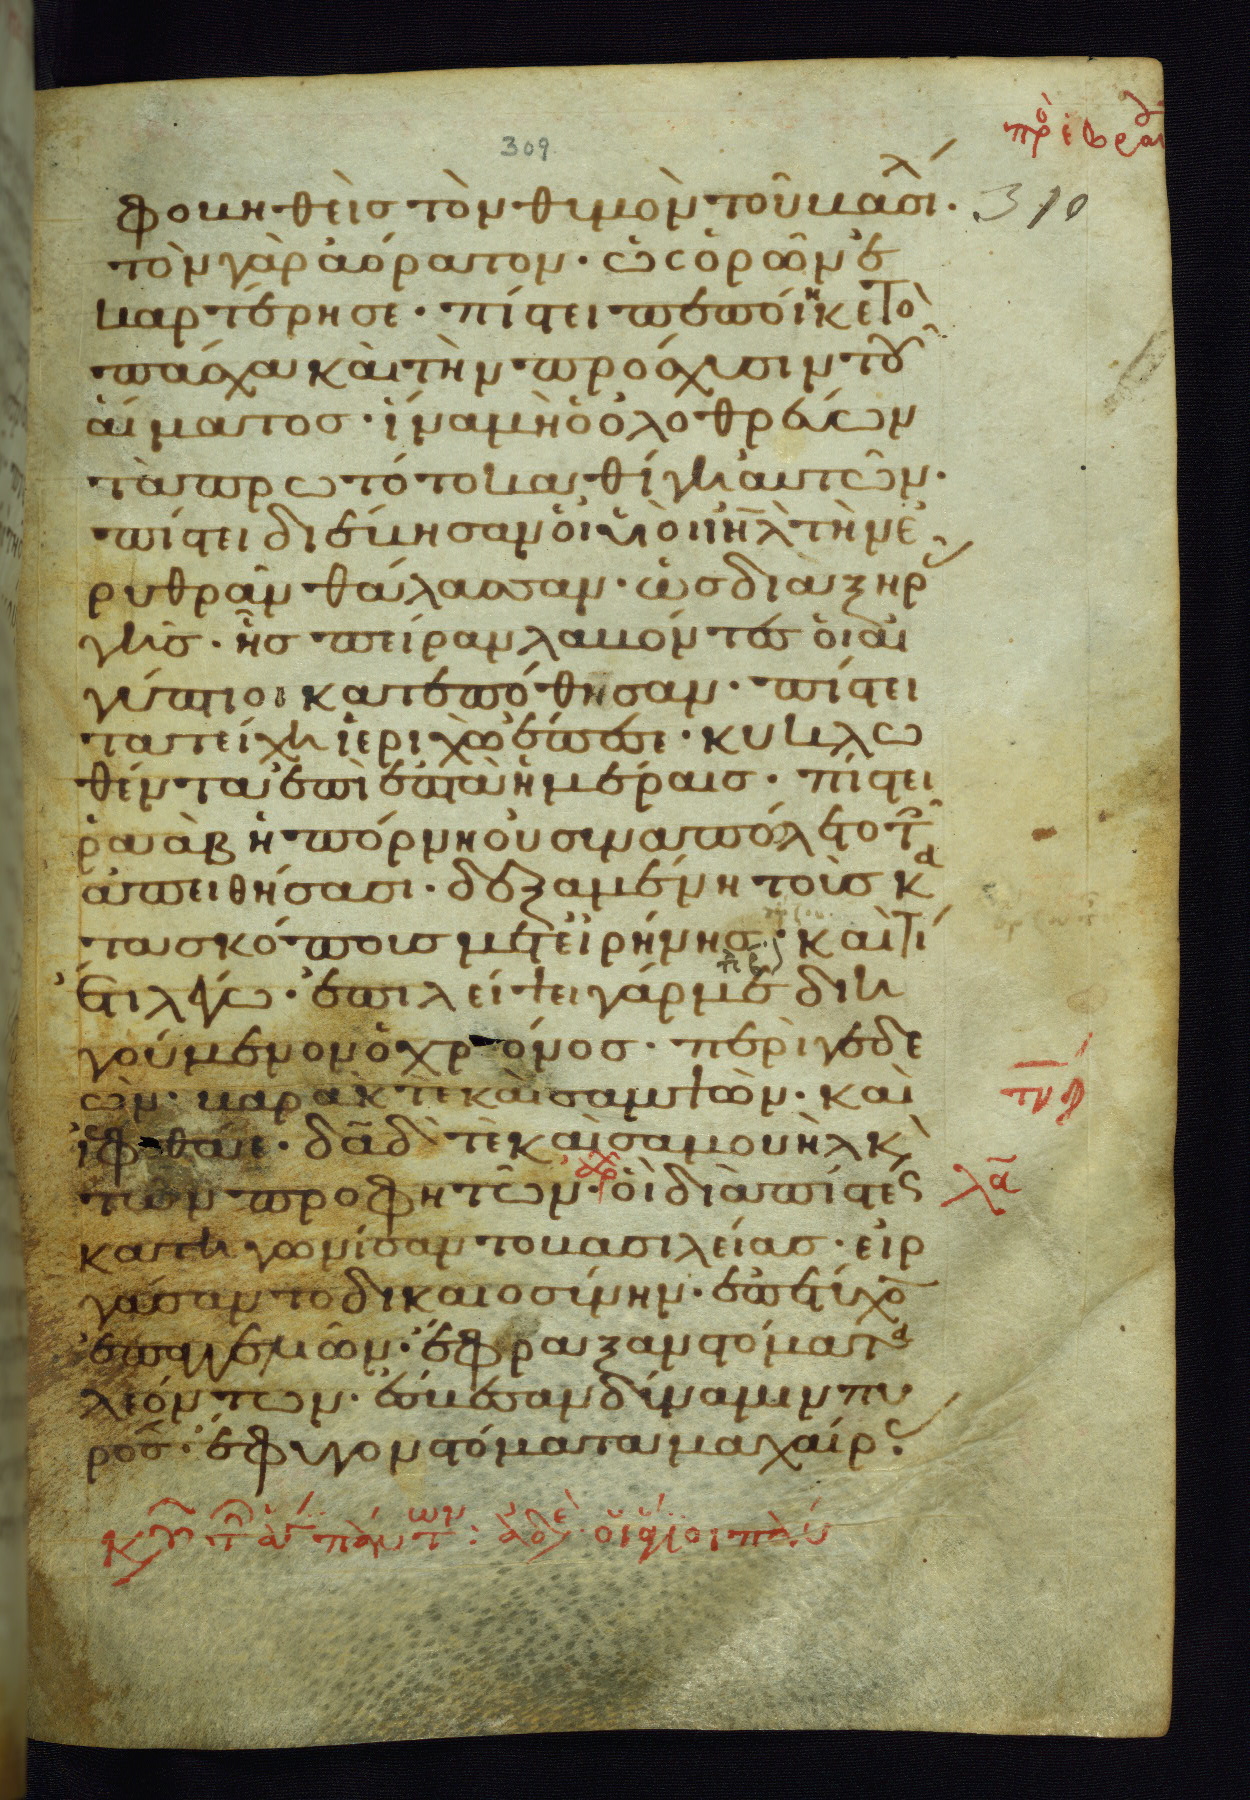 πρ εβρ
309
310
φοβηθεὶς τὸν θυμὸν τοῦ βασιλ
τὸν γὰρ ἀόρατον · ὡς ὁρῶν ἐ
καρτέρησε · πίστει πεποίηκε τὸ
πάσχα καὶ τὴν πρόσχυσιν τοῦ
αἵματος · ἵνα μὴ ὁ ὀλοθρεύων
τὰ πρωτότοκα θίγη αὐτῶν ·
πίστει διέβησαν οἱ υἱοὶ ιηλ τὴν ἐ
ρυθρὰν θάλασσαν · ὡς διὰ ξηρ
γῆς · ἧς πεῖραν λαβόντες οἱ αἰ
γύπτιοι κατεπόθησαν · πίστει
τὰ τείχη ἱεριχὼ ἔπεσε · κυκλω
θέντα ἐπὶ ἑπτὰ ἡμέραις · πίστει
ῥαὰβ ἡ πόρνη οὐ συναπώλετο τ
ἀπειθήσασι · δεξαμένη τοὺς κα
τασκόπους μετ εἰρήνης · καὶ τί
ἔτι λέγω · ἐπιλείψει γάρ με διη
γούμενον ὁ χρόνος · περὶ γεδε
ὼν · βαρὰκ τὲ καὶ σαμψὼν · καὶ
ἰεφθάε · δαδ τὲ καὶ σαμουὴλ κ
τῶν προφητῶν · οἱ διὰ πίστεως
κατηγωνίσαντο βασιλείας · εἰρ
γάσαντο δικαιοσύνην · ἐπέτυχο
ἐπαγγελιῶν · ἔφραξαν στόματα
λεόντων · ἔσβεσαν δύναμιν πυ
ρός · ἔφυγον στόματα μαχαίρ
οἱ ἅγιοι πάν